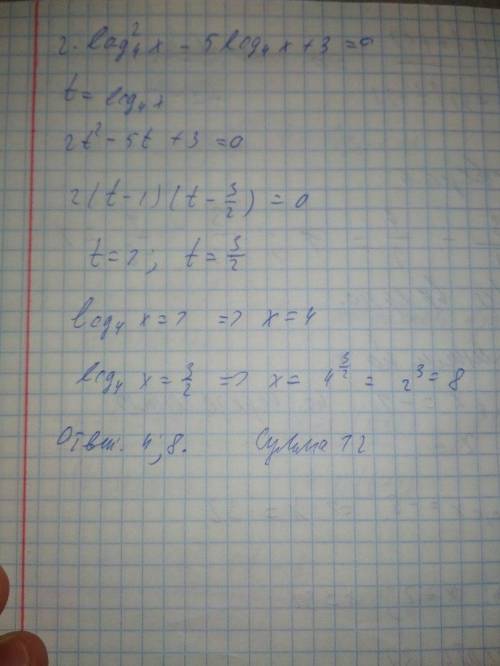 2·log₄²x - 5log₄x + 3 = 0
t = log₄x
2t² - 5t + 3 = 0
2(t-1)(t-3/2) = 0
t=1; t=3/2
log₄ x = 1 => x = 4
log₄ x = 3/2 => x = 4^(3/2) = 2³ = 8
Ответ. 4; 8. Сумма 12